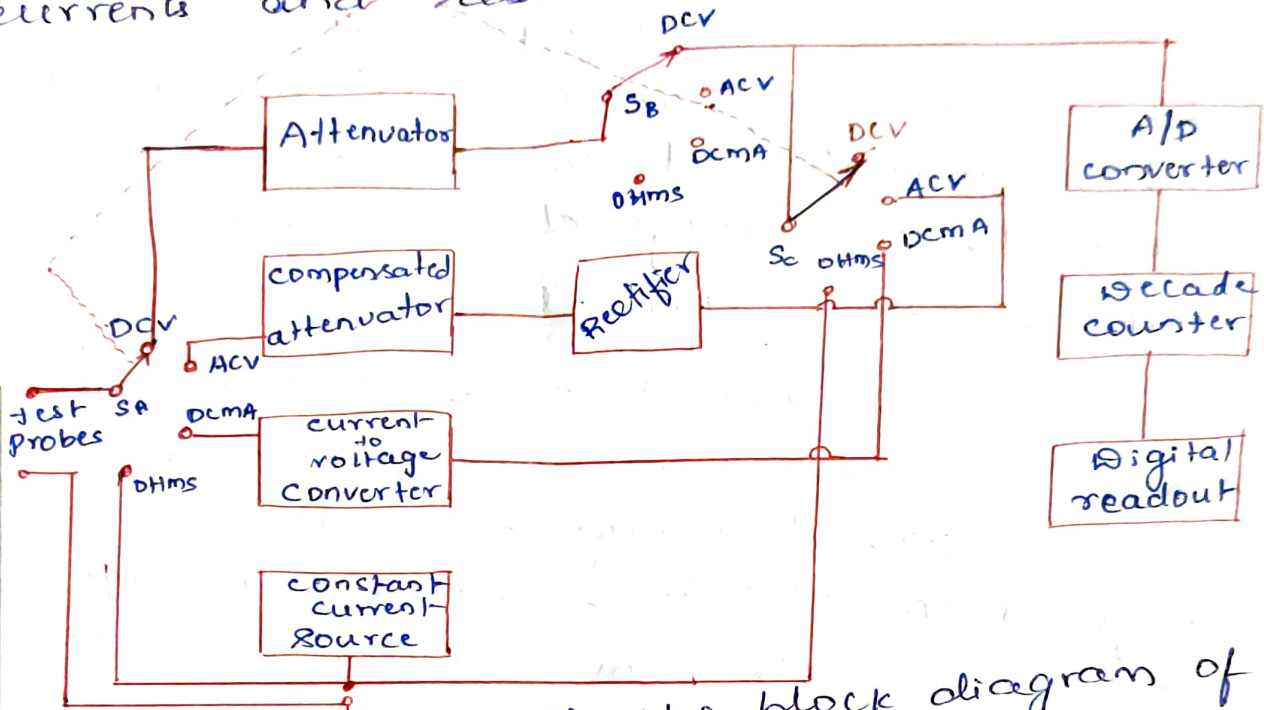 currents and
DCV
SB
ACV
DCMA
OHMS
Attenuator
DCV
ACV
DCMA
Sc OHMS
A/D
converter
compensated
attenuator
Rectifier
Decade
counter
DCV
ACV
Test SA
Probes
DCMA
OHMS
current
to
voltage
converter
Digital
readout
constant
current
source
block diagram of